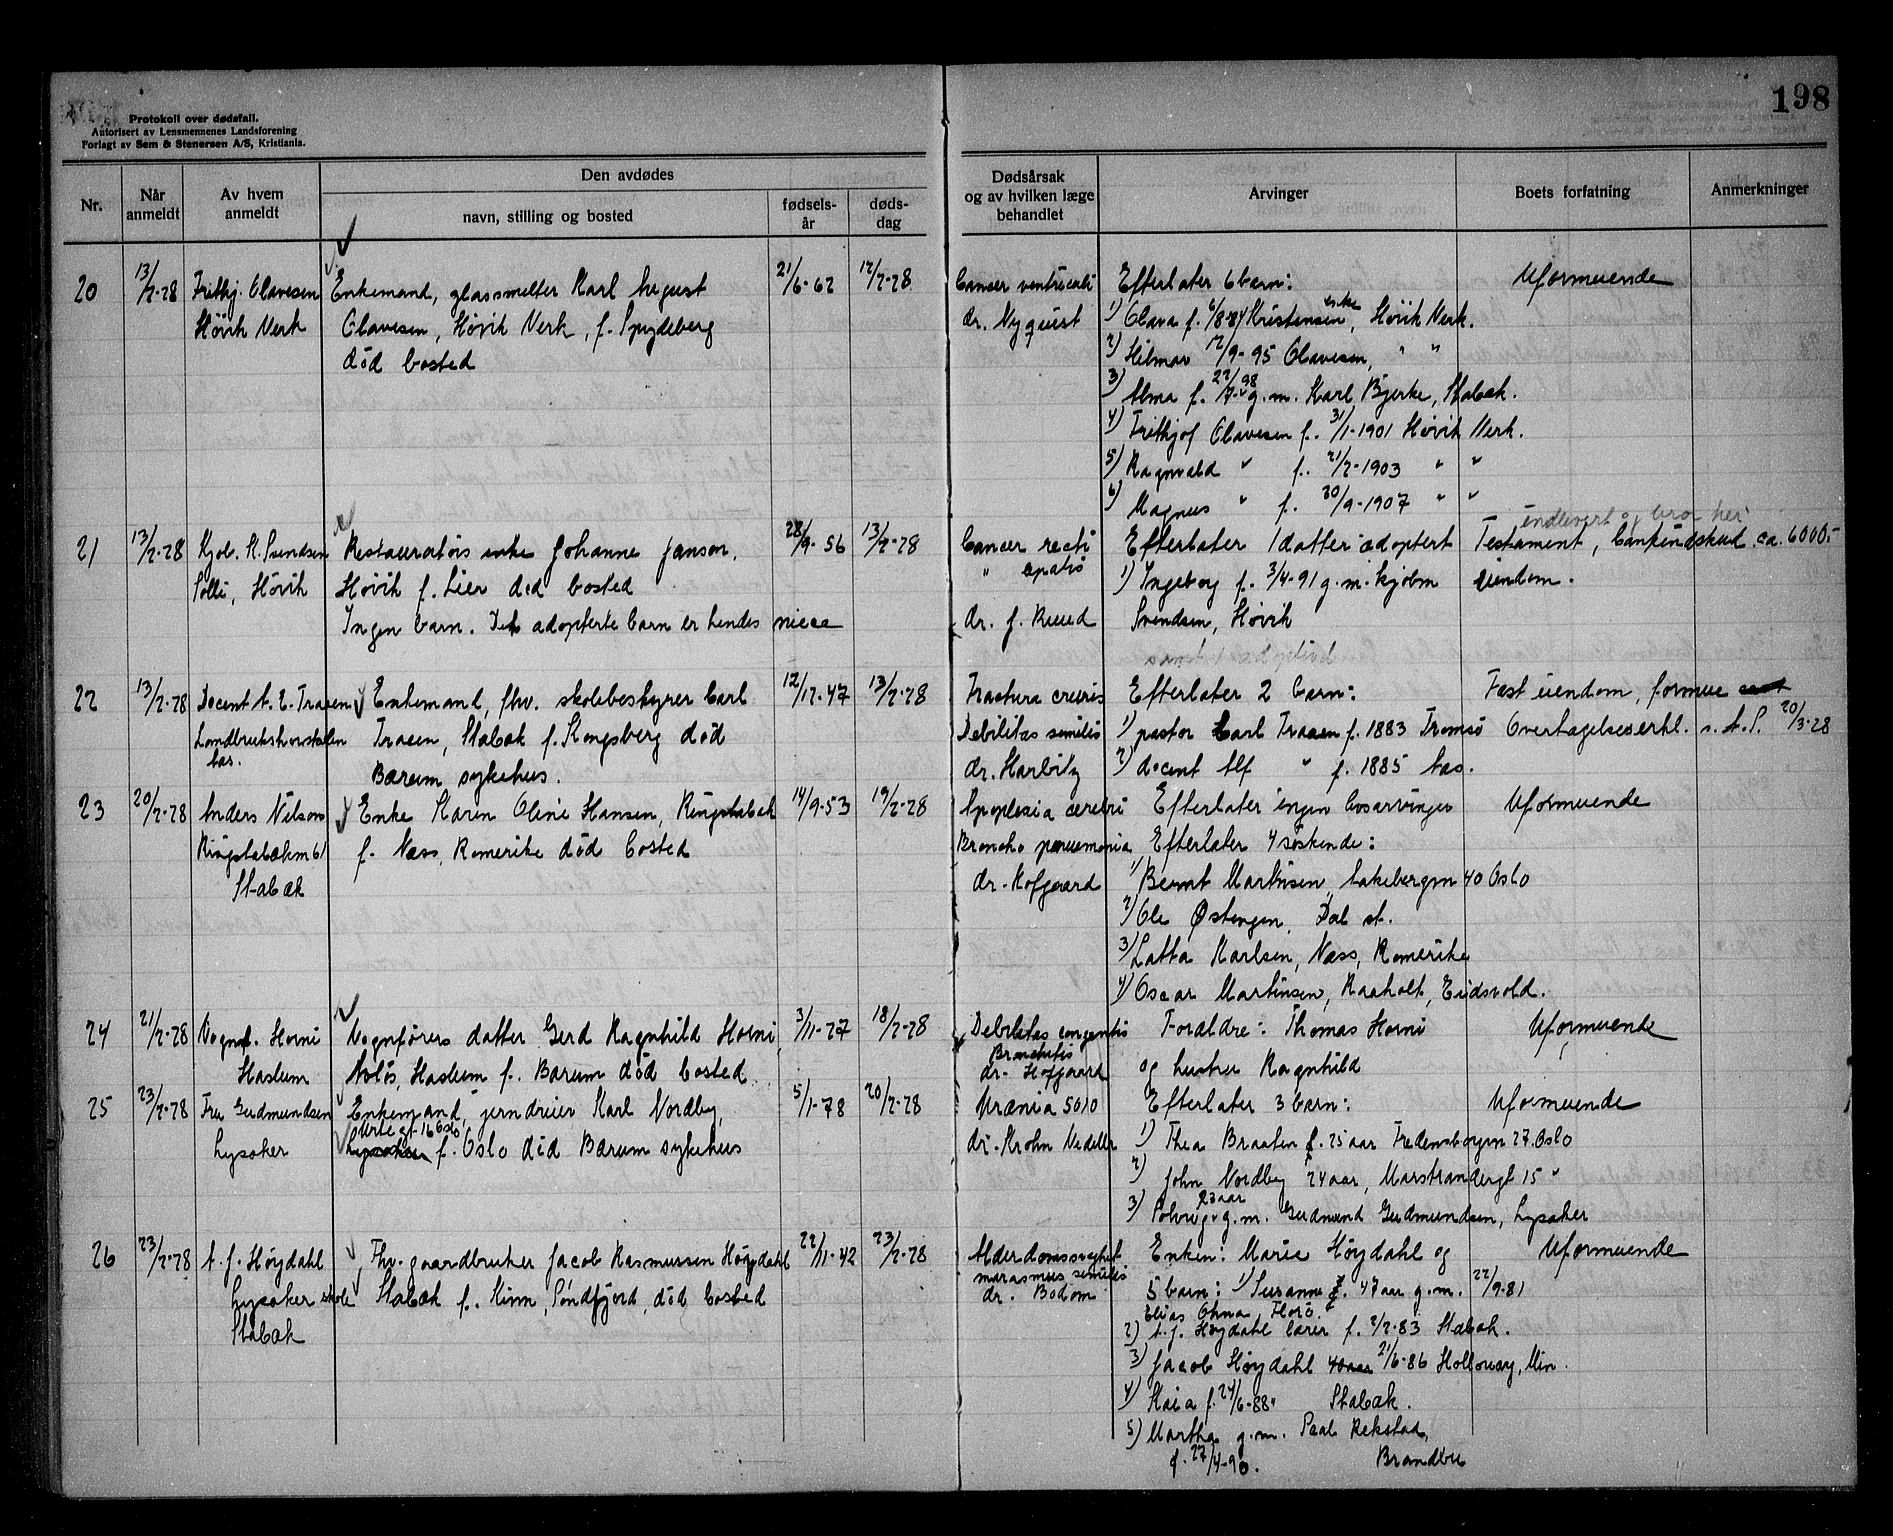 198
Protokoll over dødsfall.
Autorisert av Lensmennenes Landsforening
Forlagt av Sem & Stenersen A/S, Kristiania.
Nr.
Når anmeldt
Av hvem anmeldt
Den avdødes
navn, stilling og bosted
fødsels-år
døds-dag
Dødsårsak og av hvilken læge behandlet
Arvinger
Boets forfatning
Anmerkninger
20 13/2-28 Frithj. Olavesen Enkemand, glassmelter Karl August 21/6-62 12/2-28 Cancer ventriculi Efterlater 6 barn: Uformuende
Høvik Verk Olavesen, Høvik Verk, f. Spydeberg dr. Nyquist 1) Olava f. 6/8-84 Kristensen, enke Høvik Verk.
død bosted 2) Hilmar 12/9-95 Olavesen, " "
3) Alma f. 22/7-98 g.m. Karl Bjerke, Stabæk.
4) Frithjof Olavesen f. 31/1-1901 Høvik Verk.
5) Ragnvald " f. 21/2-1903 " "
6) Magnus " f. 20/9-1907 " "
21 13/2-28 Kjøb. K. Svendsen Restauratørs enke Johanne Janson, 28/9-56 13/2-28 Cancer recti Efterlater 1 datter adoptert Testament, ca. 6000.-
Solli, Høvik Høvik f. Lier død bosted " epatis 1) Ingeborg f. 3/4-91 g.m. kjøbm eiendom.
Ingen barn. Det adopterte barn er hendes niece dr. J. Ruud Svendsen, Høvik
22 13/2-28 Docent A. E. Traaen Enkemand, fhv. skolebestyrer Carl 12/12-47 13/2-28 Fractura cruris Efterlater 2 barn: Fast eiendom, formue
Landbrukshøiskolen Traaen, Stabæk f. Kongsberg død Debilitas senilis 1) pastor Carl Traaen f. 1883 Tromsø Overtagelseserkl. s. A. P. 20/3-28
Aas. Bærum sykehus. dr. Harbitz 2) docent Alf " f. 1885 Aas.
23 20/2-28 Anders Nilsen Enke Karen Oline Hansen, Ringstabæk 14/9-53 19/2-28 Apoplexia cerebri Efterlater ingen livsarvinger Uformuende
Ringstabækm 61 f. Næss, Romerike død bosted Broncho pneumonia Efterlater 4 søskende:
Stabæk dr. Hofgaard 1) Bernt Martinsen, Ekebergvn 40 Oslo
2) Ole Østengen, Dal st.
3) Lotta Karlsen, Næss, Romerike
4) Oscar Martinsen, Raaholt, Eidsvold.
24 21/2-28 Vognf. Horni Vognførers datter Gerd Ragnhild Horni, 3/11-27 18/2-28 Debilitas congenitis Forældre: Thomas Horni Uformuende
Haslum Avløs, Haslum f. Bærum død bosted Bronchitis og hustru Ragnhild
dr. Hofgaard
25 23/2-28 Fru Gudmundsen Enkemand, jerndreier Karl Nordby, 5/1-78 20/2-28 Uræmia 5010 Efterlater 3 barn: Uformuende
Lysaker Urtegt. 16 Oslo Lysaker f. Oslo død Bærum sykehus dr. Krohn Vedeller 1) Thea Braaten f. 25 aar Fredensborgvn 27 Oslo
2) John Nordby 24 aar, Marstrandergt 15 "
3) Solveig 23 aar g.m. Gudmund Gudmundsen, Lysaker
26 23/2-28 A. J. Høydahl Fhv. gaardbruker Jacob Rasmussen Høydahl 22/11-42 23/2-28 Alderdomssvaghet Enken: Marie Høydahl og Uformuende
Lysaker skole Stabæk f. Kinn, Søndfjord, død bosted marasmus senilis 5 barn: 1) Susanne f. 47 aar g.m. 22/9-81
Stabæk dr. Bodom Elias Florø
2) A. J. Høydahl lærer f. 2/2-83 Stabæk.
3) Jacob Høydahl 40 aar 21/6-86 Holloway, Min.
4) Kaia f. 24/6-88 Stabæk.
5) Martha g.m. Paal Rekstad,
f. 27/4-90. Brandbu